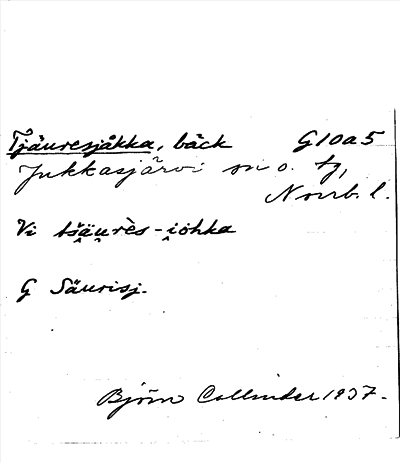 Tjäuresjåkka, bäck G10a5
Jukkasjärvi sn o. tg,
Norrb. l.
Vi tšäu̯rès-i̯ohka
G Säurisj.
Björn Collinder 1937.